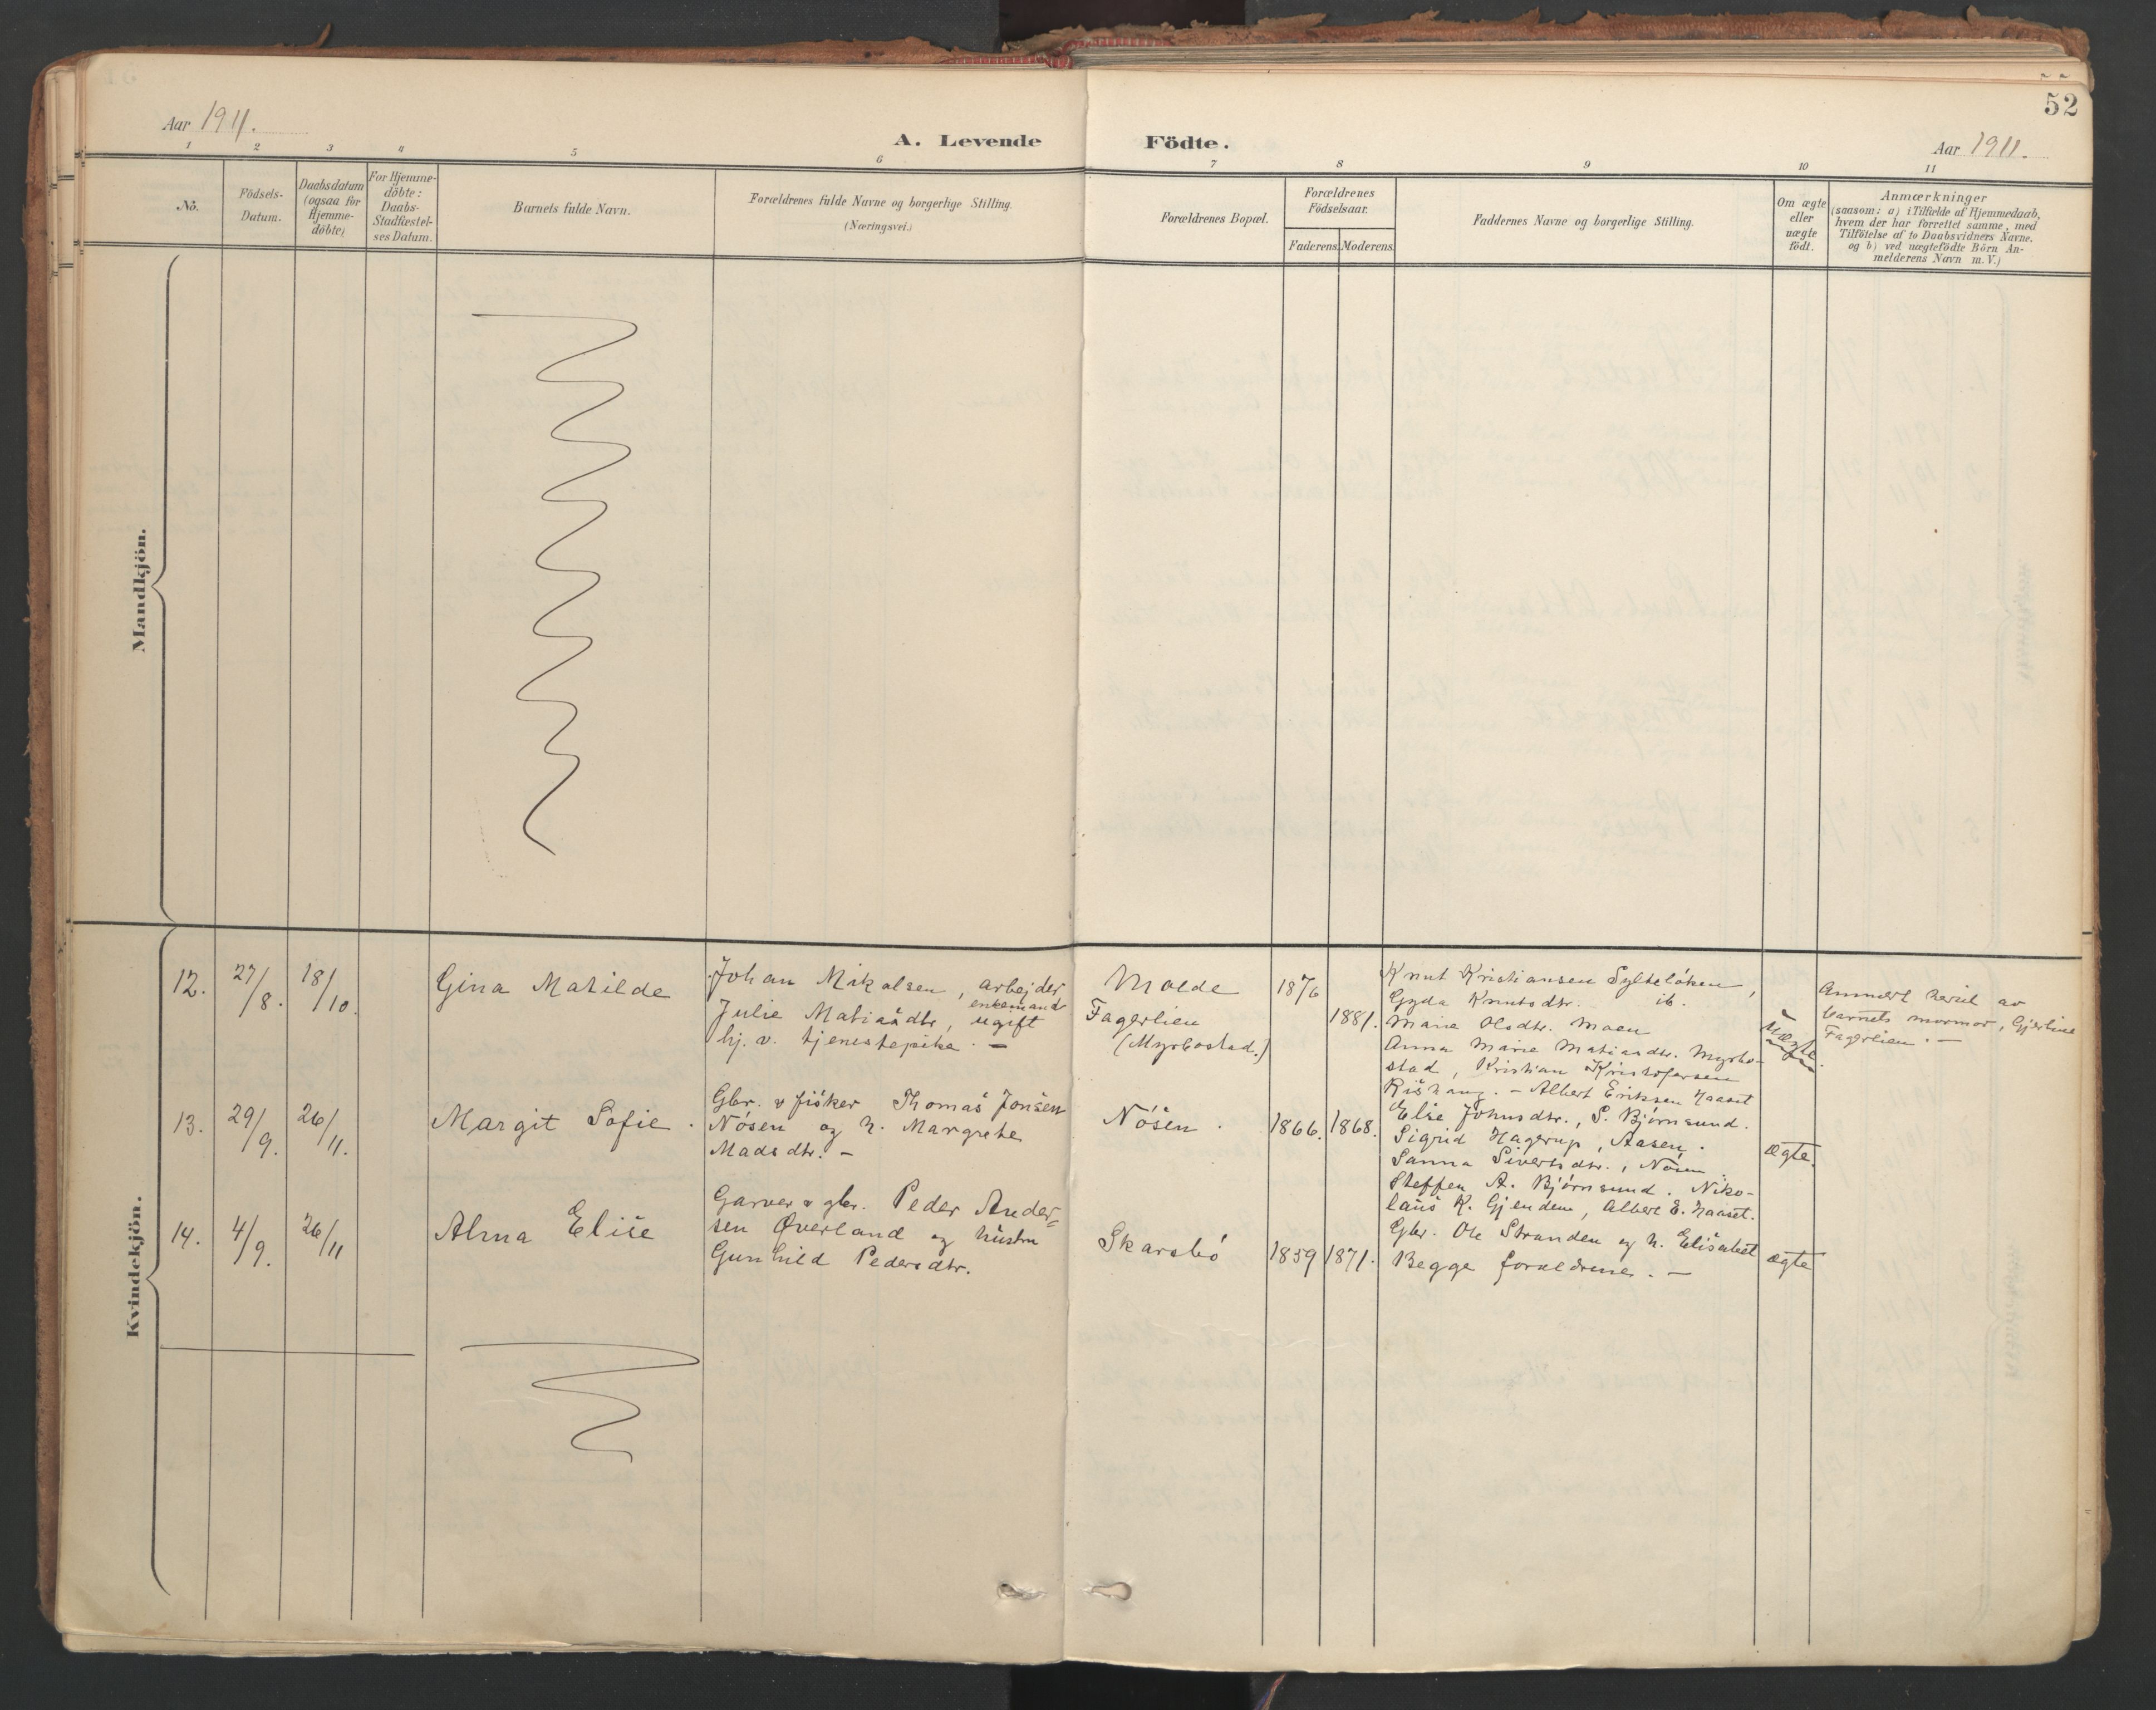 52
Aar 1911.
A. Levende Födte.
Aar 1911.
1 2 3 4 5 6 7 8 9 10 11
No.
Födsels-
Datum.
Daabsdatum
(ogsaa for
Hjemme-
döbte)
For Hjemme-
döbte:
Daabs-
Stadfæstel-
ses Datum.
Barnets fulde Navn.
Forældrenes fulde Navne og borgerlige Stilling.
(Næringsvei.)
Forældrenes Bopæl.
Forældrenes
Födselsaar.
Faderens. Moderens.
Faddernes Navne og borgerlige Stilling.
Om ægte
eller
uægte
födt.
Anmærkninger
(saasom: a) i Tilfælde af Hjemmedaab,
hvem der har forrettet samme, med
Tilföielse af to Daabsvidners Navne.
og b) ved uægtefödte Börn An-
melderens Navn m. V.)
Mandkjön.
Kvindekjön.
12.
27/8.
18/10.
Gina Matilde
Johan Mikalsen, arbejder
enkemand
Julie Matiasdtr, ugift
hj. v. tjenestepike. —
Molde
Fagerlien
(Myrbostad.)
1876
1881.
Knut Kristiansen Sylteløken,
Gyda Knutsdtr. ib.
Marie Olsdtr. Moen
Anna Marie Matiasdtr. Myrbo-
stad, Kristian Kristofersen
Rishaug. – Albert Eriksen Haaset
Uægte.
Anmeldt hertil av
barnets mormor, Gjertine
Fagerlien. —
13.
29/9.
26/11.
Margit Sofie.
Gbr. & fisker Thomas Jonsen
Nösen og h. Margrete
Madsdtr. —
Nösen.
1866. 1868.
Else Johnsdtr., S. Bjørnsund.
Sigrid Hagerup, Aasen.
Sanna Sivertsdtr., Nösen.
Steffen A. Bjørnsund. Niko-
laus K. Gjendem, Albert E. Haaset.
ægte.
14.
4/9.
26/11
Alma Elise
Garver & gbr. Peder Ander-
sen Øverland og hustru
Gunhild Pedersdtr.
Skarsbö
1859 1871.
Gbr. Ole Stranden og h. Elisabet
Begge forældrene. —
ægte